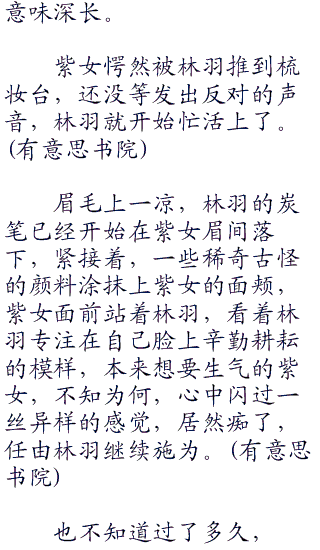 意味深长。
紫女愕然被林羽推到梳
妆台，还没等发出反对的声
音，林羽就开始忙活上了。
(有意思书院)
眉毛上一凉，林羽的炭
笔已经开始在紫女眉间落
下，紧接着，一些稀奇古怪
的颜料涂抹上紫女的面颊，
紫女面前站着林羽，看着林
羽专注在自己脸上辛勤耕耘
的模样，本来想要生气的紫
女，不知为何，心中闪过一
丝异样的感觉，居然痴了，
任由林羽继续施为。(有意思
书院)
也不知道过了多久，